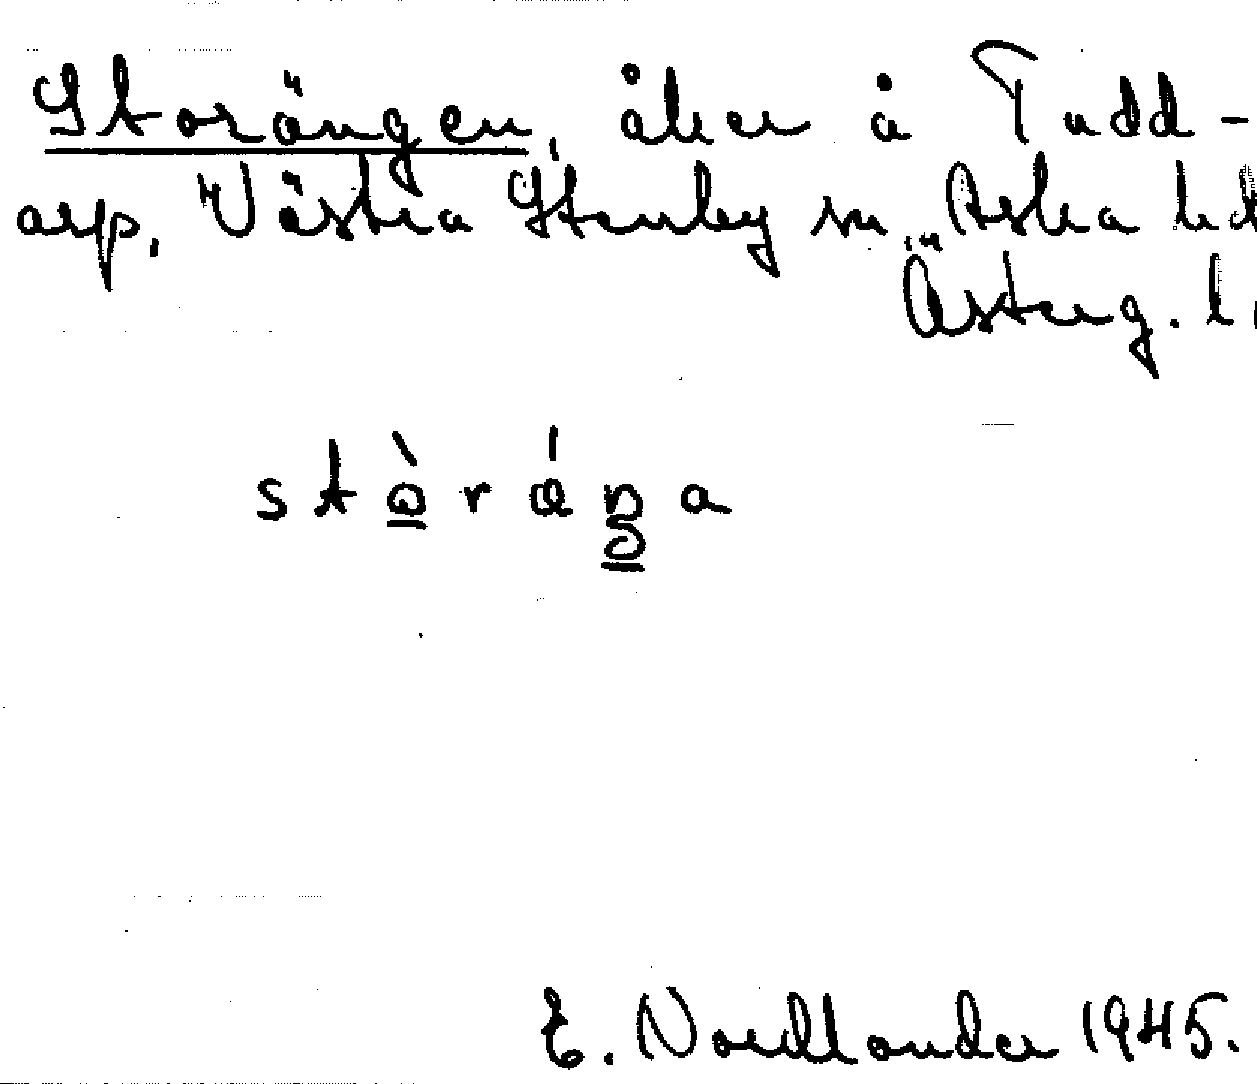 Storängen, åker å Tadd-
arp, Västra Stenby sn, Aska hd
Österg. l
stòräŋa
E. Nordlander 1945.